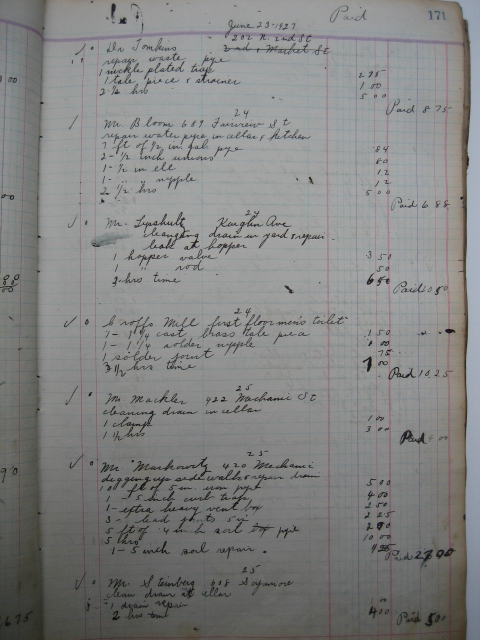 Paid 171
June 23-1927
Dr Tomkins 202 N. 2nd St
2nd & Market St
repair waste pipe
1 nickle plated trap 2 75
1 tale piece & strainer 1 00
2 ½ hrs 5 00
Paid 8 75
24
Mr. Bloom 689 Fairview St
repair water pipe in cellar & kitchen
7 ft of ½ in gal pipe 84
2 - ½ inch unions 80
1 - ½ in ell 12
1 - " " nipple 12
2 ½ hrs 5 00
Paid 6 88
24
Mr. Lipshultz Ave
cleanging drain in yard & repair
leak at hopper
1 hopper valve 3 50
1 " rod 50
3 hrs time 6 50
Paid 10 50
24
Groffs Mill first floor men's toilet
1 - 1¼ cast brass tale peice 1 50
1 - 1¼ solder nipple
1 solder joint 75
3 ½ hrs time 7 00
Paid 10,25
25
Mr Mackler 422 Machanic St
cleaning drain in cellar
1 clamp 1 00
1 ½ hrs 3 00
Paid 4 00
25
Mr Markowitz 420 Mechanic
digging up side walk & repair drain
10 ft of 5 in. iron pipe 5 00
1 - 5 inch curb trap 4 00
1 - extra heavy vent box 2 50
3 - lead joints 5 in 2 25
5 ft of 4 inch soil pipe 2 00
5 hrs 10 00
1 - 5 inch soil repair.
Paid
25
Mr. Steinberg Sycamore
clean drain at cellar
1 drain repair 1 00
2 hrs time 4 00
Paid 5 00